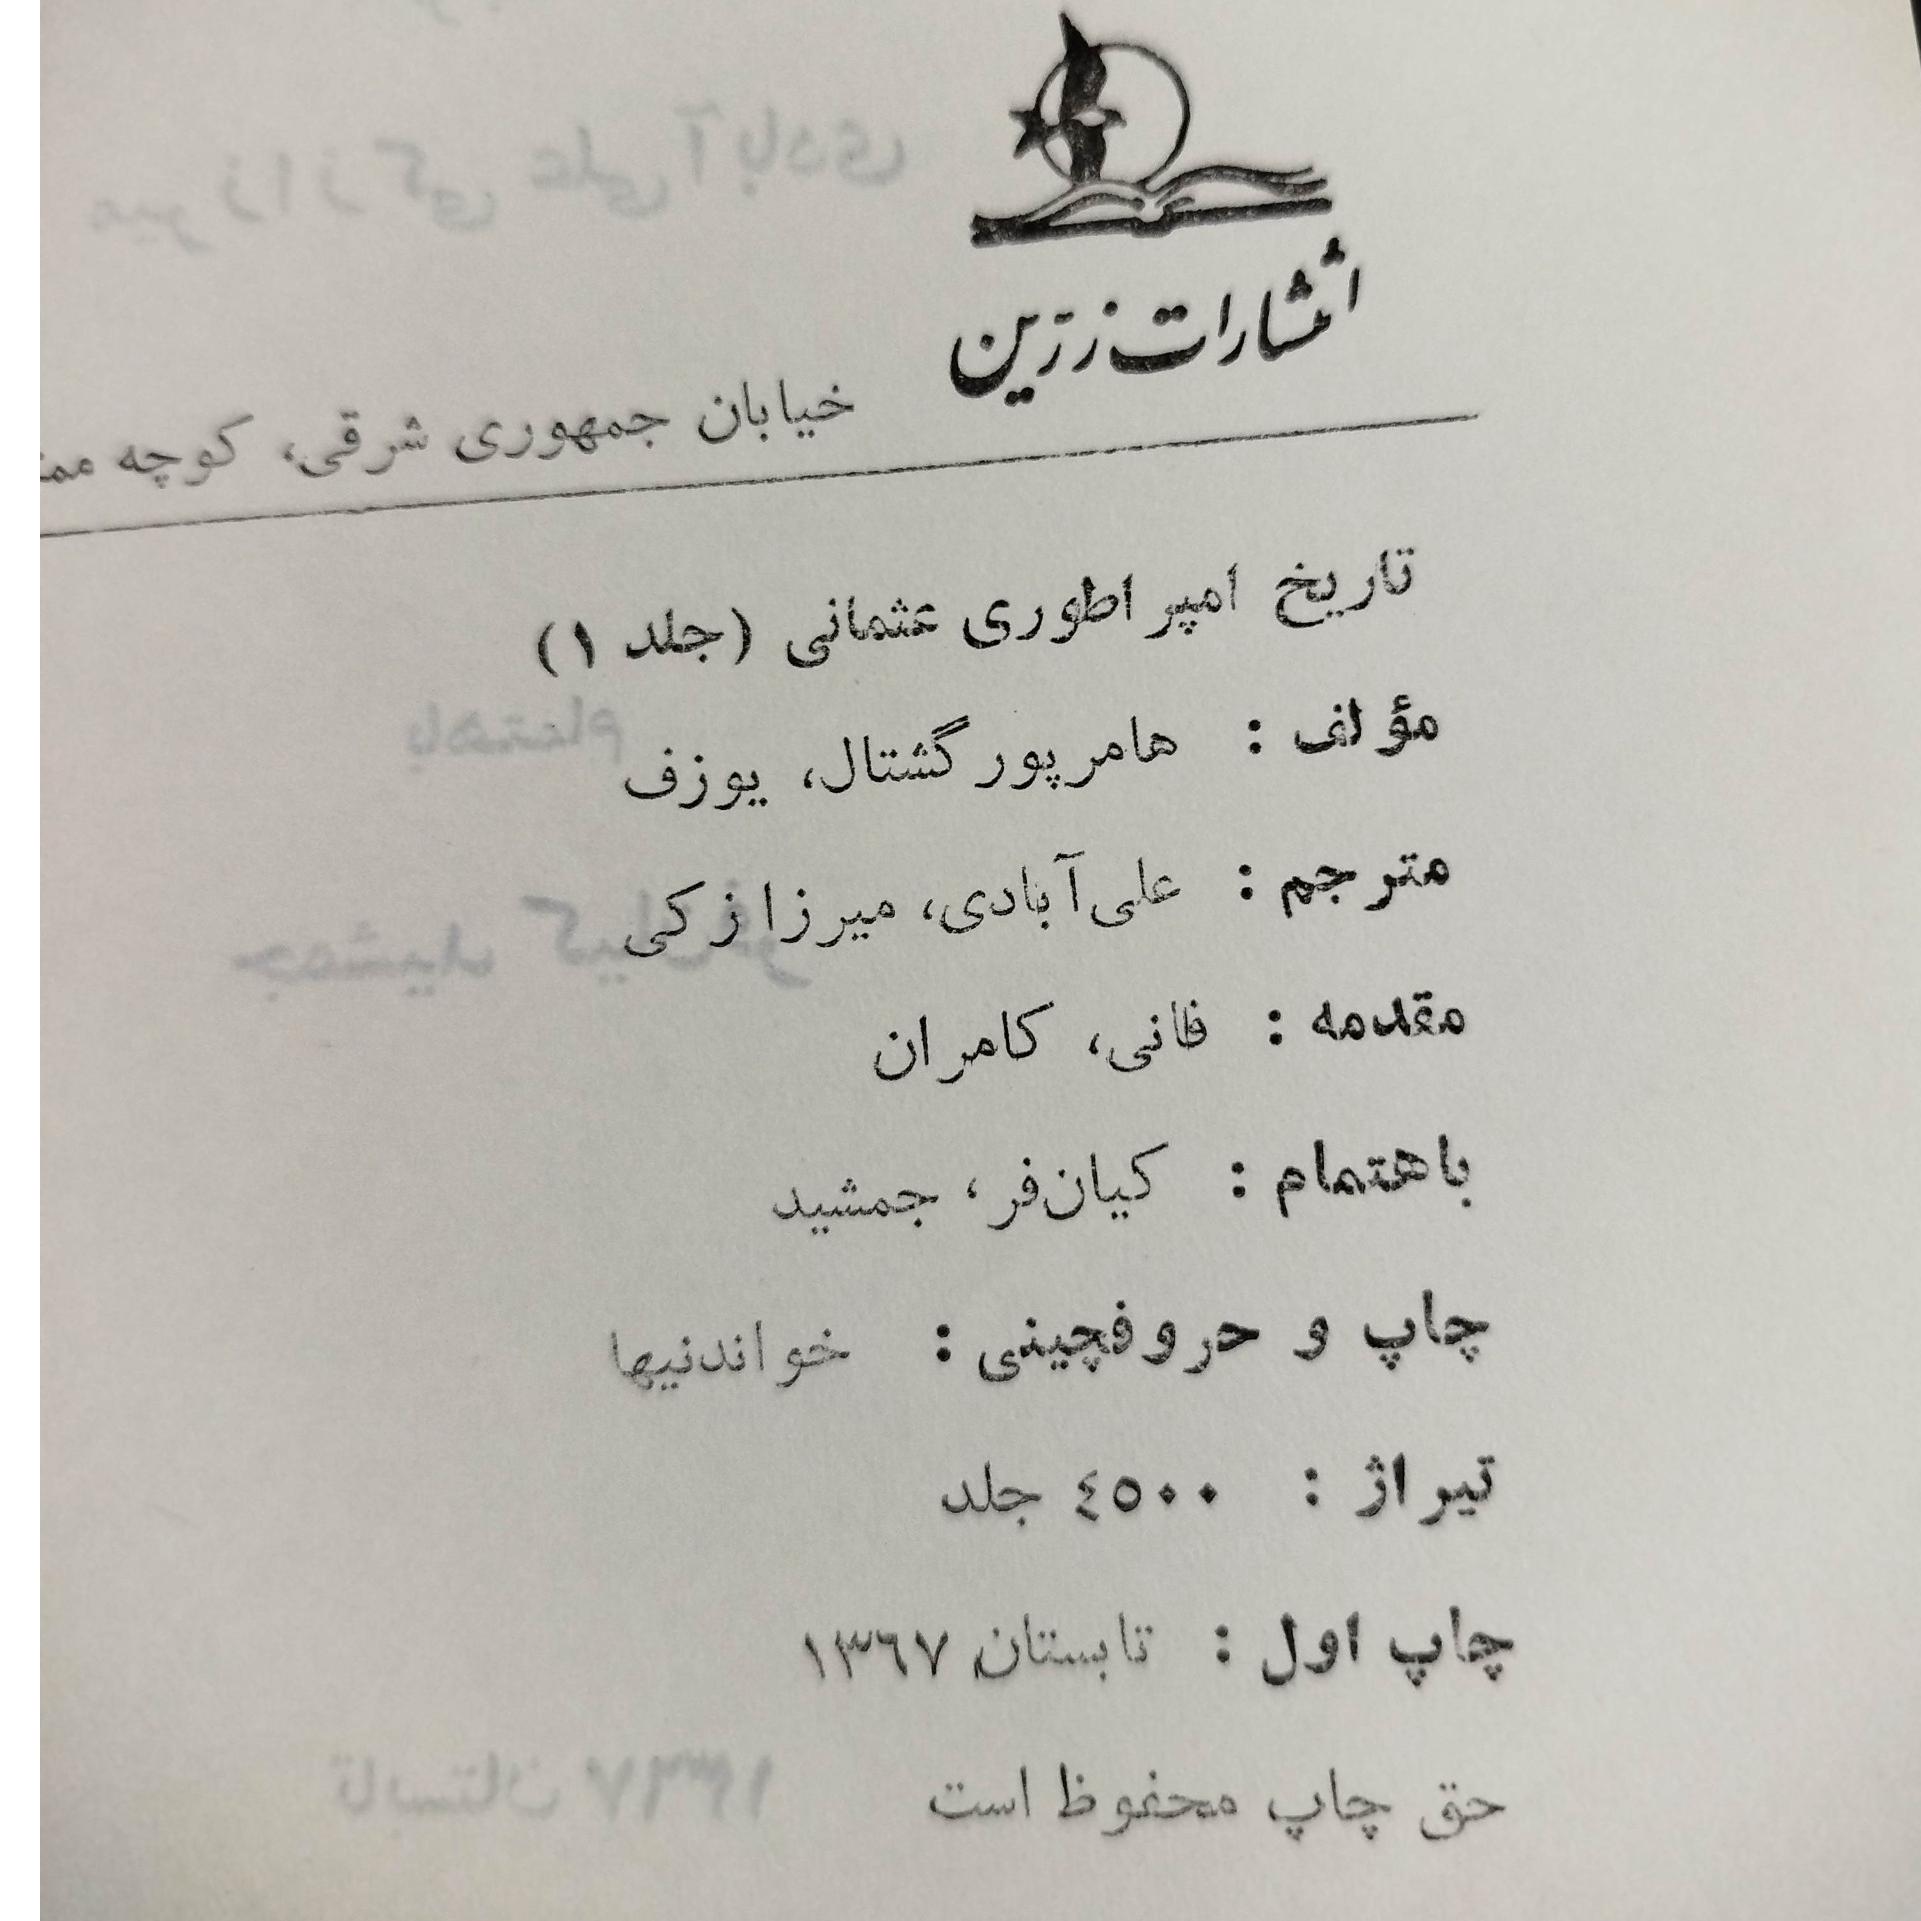 انتشارات زرین
خیابان جمهوری شرقی، کوچه
تاریخ امپراطوری عثمانی (جلد ۱)
مؤلف : هامرپورگشتال، یوزف
مترجم : علی‌آبادی، میرزا زکی
مقدمه : فانی، کامران
باهتمام : کیان‌فر، جمشید
چاپ و حروفچینی : خواندنیها
تیراژ : ٤٥٠٠ جلد
چاپ اول : تابستان ١٣٦٧
حق چاپ محفوظ است